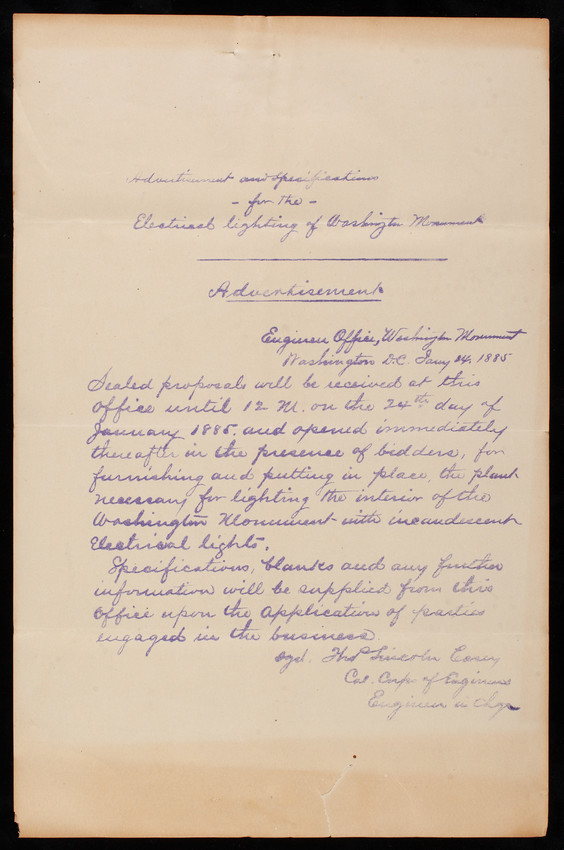 Advertisement and Specifications
- for the -
Electrical lighting of Washington Monument
Advertisement
Engineer Office, Washington Monument
Washington D.C. Jany 14, 1885
Sealed proposals will be received at this
office until 12 M. on the 24th day of
January 1885, and opened immediately
thereafter in the presence of bidders, for
furnishing and putting in place, the plant
necessary for lighting the interior of the
Washington Monument with incandescent
Electrical lights.
Specifications, blanks and any further
information will be supplied from this
Office upon the application of parties
engaged in the business.
Sgd. Thos Lincoln Casey
Col. Corps of Engineers
Engineer in Chge